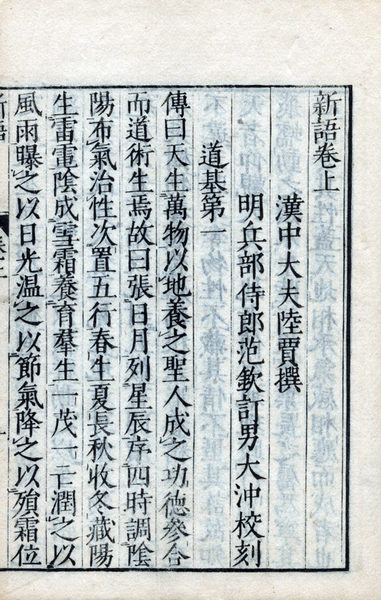 新語卷上
漢中大夫陸賈撰
明兵部侍郎范欽訂男大沖校刻
道基第一
傳曰天生萬物以地養之聖人成之功德參合
而道術生焉故曰張日月列星辰序四時調陰
陽布氣治性次置五行春生夏長秋收冬藏陽
生雷電陰成雪霜養育羣生一茂一亡潤之以
風雨曝之以日光温之以節氣降之以殞霜位
新語